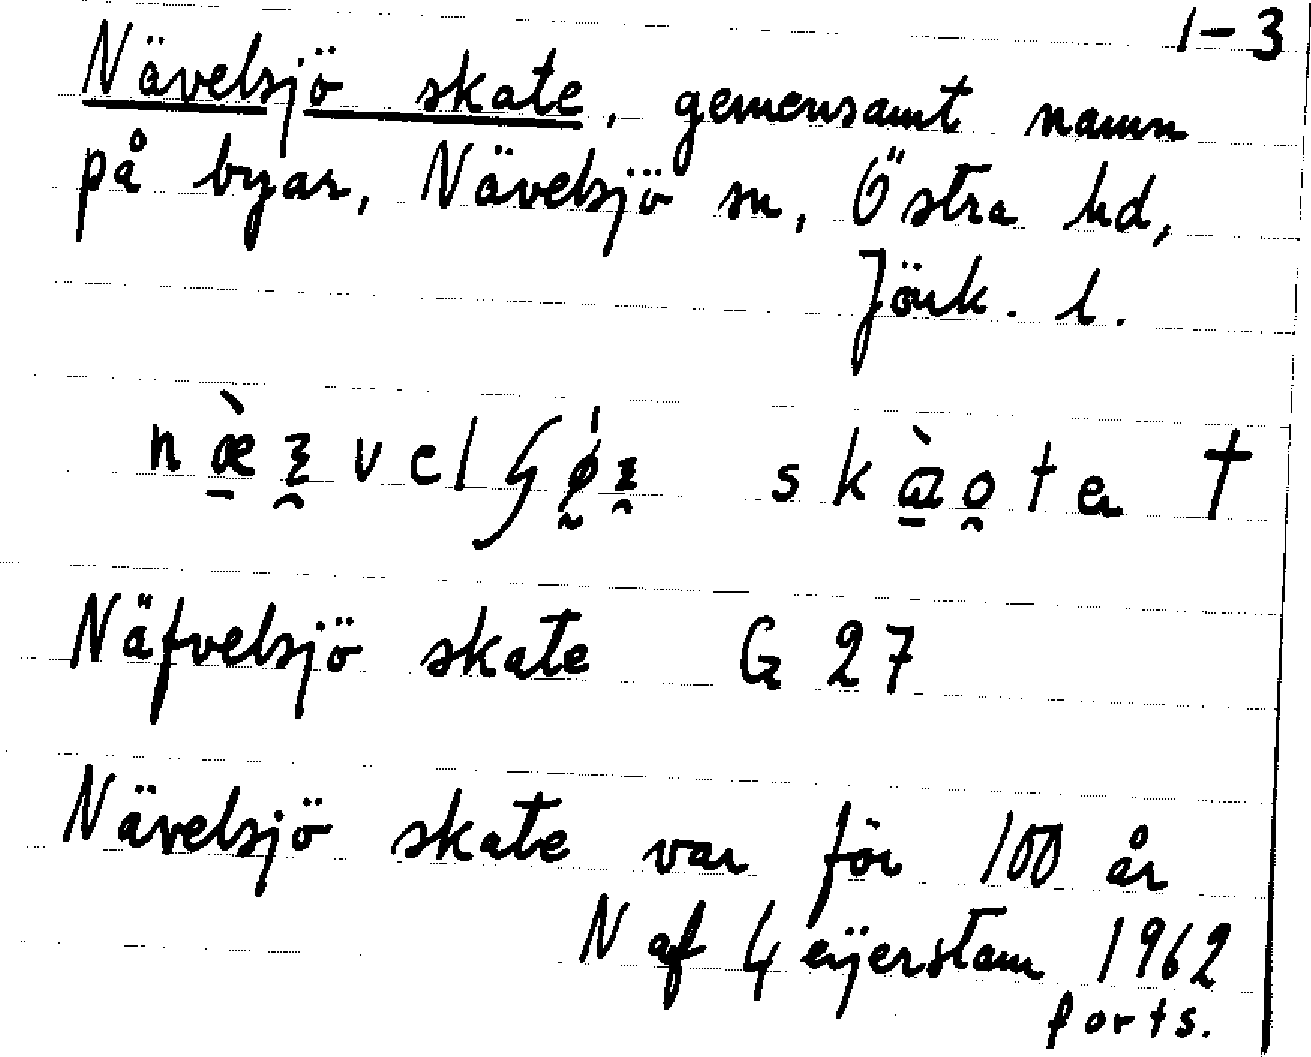 1-3
Nävelsjö skate, gemensamt namn
på byar, Nävelsjö sn, Östra hd,
Jönk. l.
skate †
Näfvelsjö skate G 27
Nävelsjö skate var för 100 år
N af Geijerstam 1962
forts.